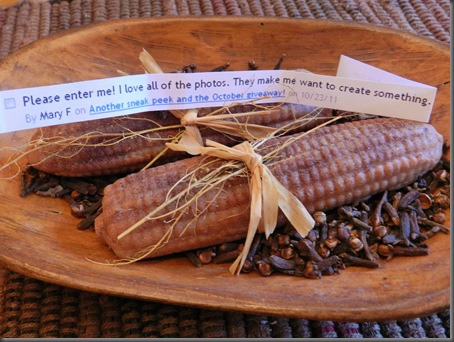 Please enter me! I love all of the photos. They make me want to create something.
By Mary F on Another sneak peek and the October giveaway! on 10/23/11